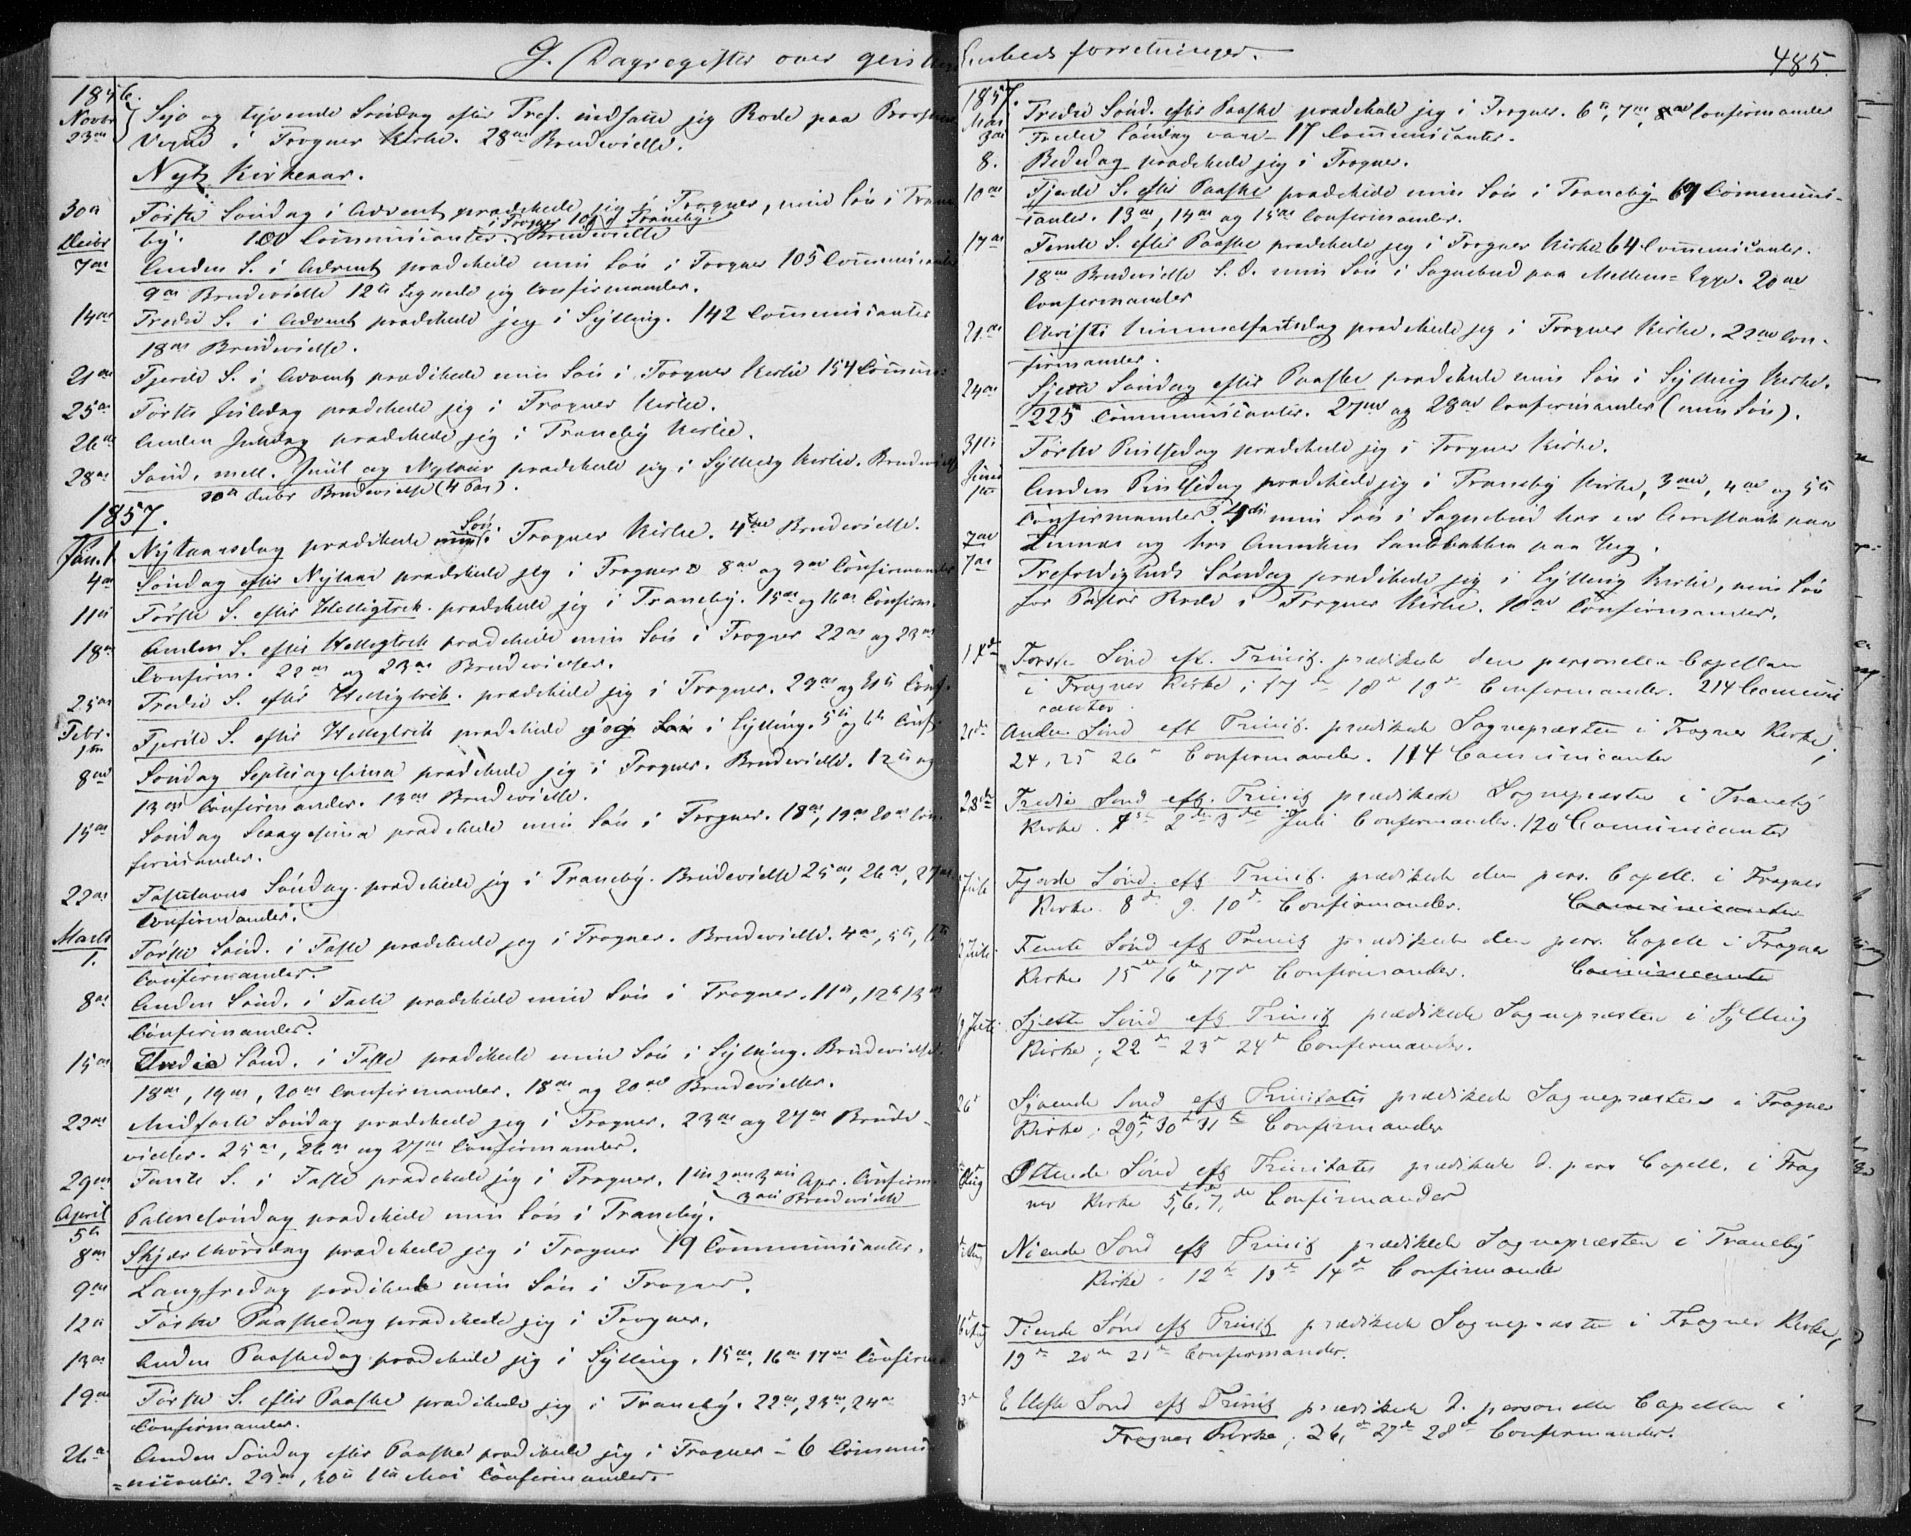 G. Dagregister over geistlige
1856.
Novbr 23de Syv og tyvende Søndag efter Tref. indsatte jeg Rode paa Provstens
Vegne i Frogner Kirke. 28de Brudevielse.
Nyt Kirkeaar.
30te Første Søndag i Advent prædikede jeg i Frogner, min Søn i Trane-
by. 100 Communicanter i Frogner 101 i Traneby. Brudevielse
Decbr 7de Anden S. i Advent prædikede min Søn i Frogner 105 Communicanter
9de Brudevielse 12te tegnede jeg Confirmander.
14de Tredie S. i Advent prædikede jeg i Sylling. 142 Communicanter
18de Brudevielse.
21de Fjerde S. i Advent prædikede min Søn i Frogner Kirke 154 Commun:
25de Første Juledag prædikede jeg i Frogner Kirke.
26de Anden Juledag prædikede jeg i Traneby Kirke.
28de Sønd. mell. Juul og Nytaar prædikede jeg i Sylling Kirke. Brudevielse
30te Decbr Brudevielse (4 Par).
1857.
Jan. 1. Nytaarsdag prædikede min Søn i Frogner Kirke. 4de Brudevielse.
4de Søndag efter Nytaar prædikede jeg i Frogner 8de og 9de Confirmander
11te Første S. efter Helligtrek. prædikede jeg i Traneby. 15de og 16de Confirm.
18de Anden S. efter Helligtrek prædikede min Søn i Frogner 22de og 23de
Confirm. 22de og 23de Brudevielser.
25de Tredie S. efter Helligtrek. prædikede jeg i Frogner. 29de og 31te Conf.
Febr. 1ste Fjerde S. efter Helligtrek prædikede jeg i Sylling. 5te og 6te Conf.
8de Søndag Septuagesima prædikede jeg i Frogner. Brudevielse. 12te og
13de Confirmander. 13de Brudevielse.
15de Søndag Sexagesima prædikede min Søn i Frogner. 18de, 19de 20de Con-
firmander.
22de Fastelavns Søndag prædikede jeg i Traneby. Brudevielse 25de, 26de, 27de
Confirmander.
Marts 1. Første Sønd. i Faste prædikede jeg i Frogner. Brudevielse. 4de, 5te, 6te
Confirmander.
8de Anden Sønd. i Faste prædikede min Søn i Frogner. 11te, 12te 13de
Confirmander.
15de Tredie Sønd. i Faste prædikede min Søn i Sylling. Brudevielse.
18de, 19de, 20de Confirmander. 18de og 20de Brudevielser.
22de Midfaste Søndag prædikede jeg i Frogner. 23de og 24de Brude-
vielser. 25de, 26de og 27de Confirmander.
29de Femte S. i Faste prædikede jeg i Frogner. 1ste 2den 3die Apr. Confirm.
3die Brudevielse
April 5te Palmesøndag prædikede min Søn i Traneby.
8de Skjærthorsdag prædikede jeg i Frogner 19 Communicanter.
9de Langfredag prædikede min Søn i Frogner.
12te Første Paaskedag prædikede jeg i Frogner.
13de Anden Paaskedag prædikede jeg i Sylling. 15de, 16de 17de Confirma
19de Første S. efter Paaske prædikede jeg i Traneby. 22de, 23de, 24de
Confirmander.
26de Anden Søndag efter Paaske prædikede jeg i Frogner - 6 Commu
=nicanter. 29de, 30te 1ste Mai Confirmander.
Embedsforretninger. 485.
1857.
Mai 3die Tredie Sønd. efter Paaske prædikede jeg i Frogner. 6te, 7de, 8de Confirmander
Tredie Søndag vare 17 Communicanter.
8. Bededag prædikede jeg i Frogner.
10de Fjerde S. efter Paaske prædikede min Søn i Traneby 69 Communi-
canter. 13de, 14de og 15de Confirmander.
17de Femte S. efter Paaske prædikede jeg i Frogner Kirke 64 Communicanter.
18de Brudevielse S. D. min Søn i Sognebud paa Mellem= Egge. 20de
Confirmander
21de Christi Himmelfartsdag prædikede jeg i Frogner Kirke. 22de Con-
firmander.
24de Sjette Søndag efter Paaske prædikede min Søn i Sylling Kirke.
225 Communicanter. 27de og 28de Confirmander (min Søn).
31te Første Pintsedag prædikede jeg i Frogner Kirke.
Juni 1ste Anden Pintsedag prædikede jeg i Traneby Kirke, 3die, 4de og 5te
Confirmander. min Søn i Sognebud hos en Arrestant paa
og hos Annichen Sandbakken paa Eeg.
7de Trefoldigheds Søndag prædikede jeg i Sylling Kirke, min Søn
for Pastor Rode i Frogner Kirke. 10de Confirmander.
14de Første Sønd eft. Trinit. prædikede den personelle Capellan
i Frogner Kirke; 17de 18de 19de Confirmander. 214 Communi
canter.
21de Anden Sønd eft Trinit. prædikede Sognepræsten i Frogner Kirke;
24, 25 26de Confirmander. 114 Communicanter
28de Tredie Sønd eft. Trinit prædikede Sognepræsten i Traneby
Kirke. 1ste 2den 3die Juli Confirmander. 120 Communicanter
Juli Fjerde Sønd. eft Trinit. prædikede den pers. Capell. i Frogner
Kirke. 8de 9. 10de Confirmander. Communicanter
2 Juli Femte Sønd eft Trinit prædikede den pers. Capell i Frogner
Kirke 15de 16de 17de Confirmander. Communicanter
9 Juli Sjette Sønd eft Trinit prædikede Sognepræsten i Sylling
Kirke; 22de 23de 24de Confirmander.
26de Syvende Sønd eft Trinitatis prædikede Sognepræsten i Frogner
Kirke; 29de, 30te 31te Confirmander
Aug Ottende Sønd eft Trinitatis prædikede d. pers Capell. i Frog
ner Kirke 5, 6, 7de Confirmander
Aug Niende Sønd eft Trinit prædikede Sognepræsten i Traneby
Kirke. 12te 13de 14de Confirmander
16 Aug Tiende Sønd eft Trinit prædikede Sognepræsten i Frogner Kirke;
19de 20de 21de Confirmander.
3de Ellefte Sønd eft Trinit prædikede d. personelle Capellan i
Frogner Kirke; 26de 27de 28de Confirmander.